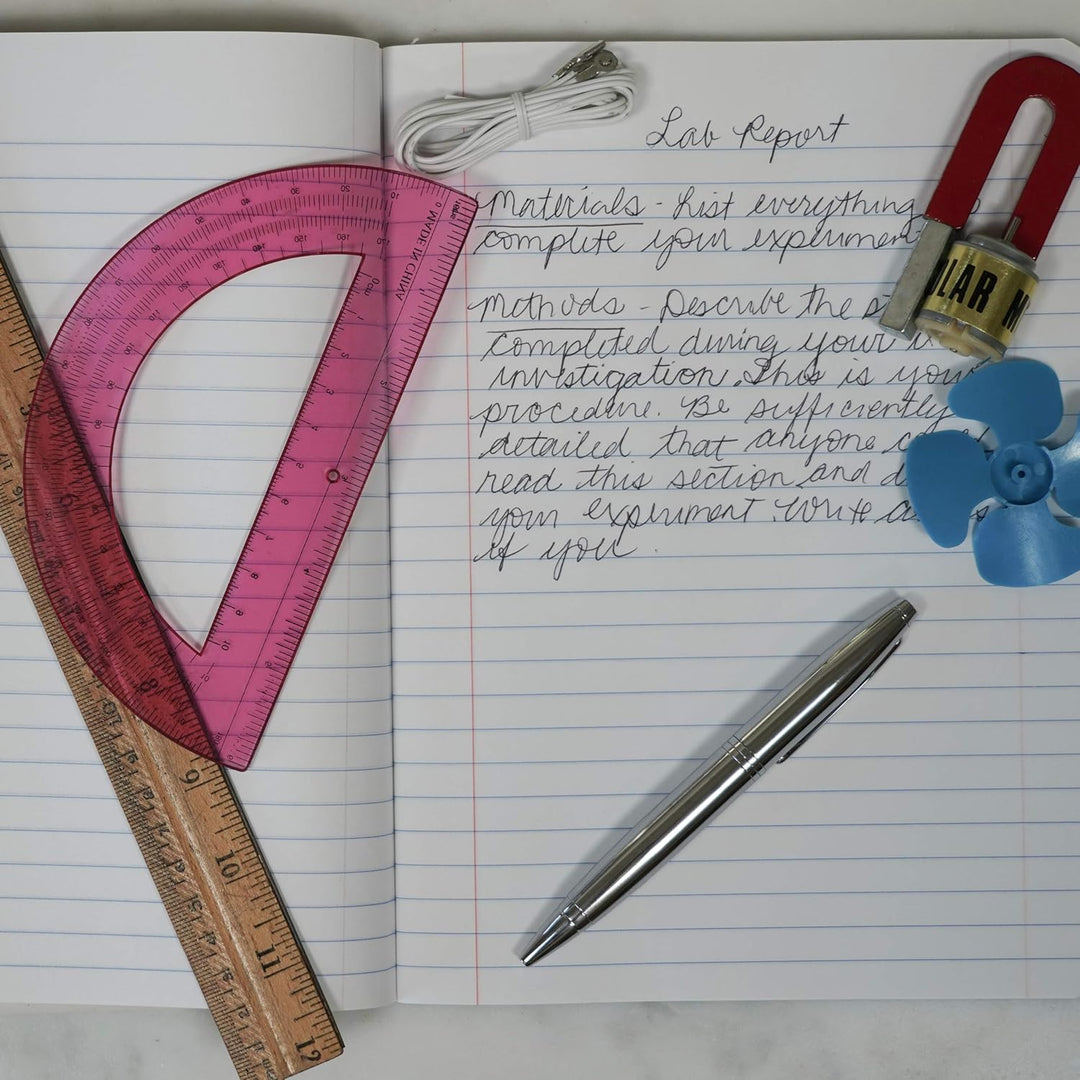 Lab Report
Materials - List everything
complete your experiment
Methods - Describe the
completed during your
investigation. This is your
procedure. Be sufficiently
detailed that anyone
read this section and
your experiment. Write
if you
MADE IN CHINA
OLAR M
9
10
11
12